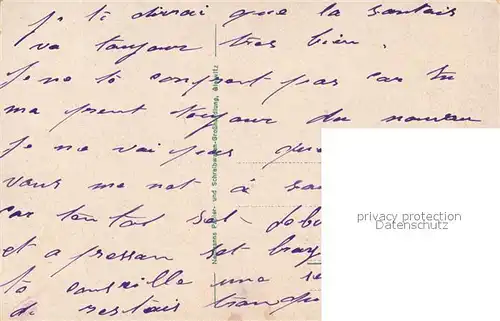 je te dirrai que la santais
va toujour tres bien.
Je ne te comprent pas car tu
ma prent toujour du nouveau
Je ne vai pas que
vous me net à
car ten tot set debu
et a pressan set
te conseille une
de restais tranqu
Papier- und Schreibwaren-Grosshandlung, Gleiwitz
privacy protection
Datenschutz